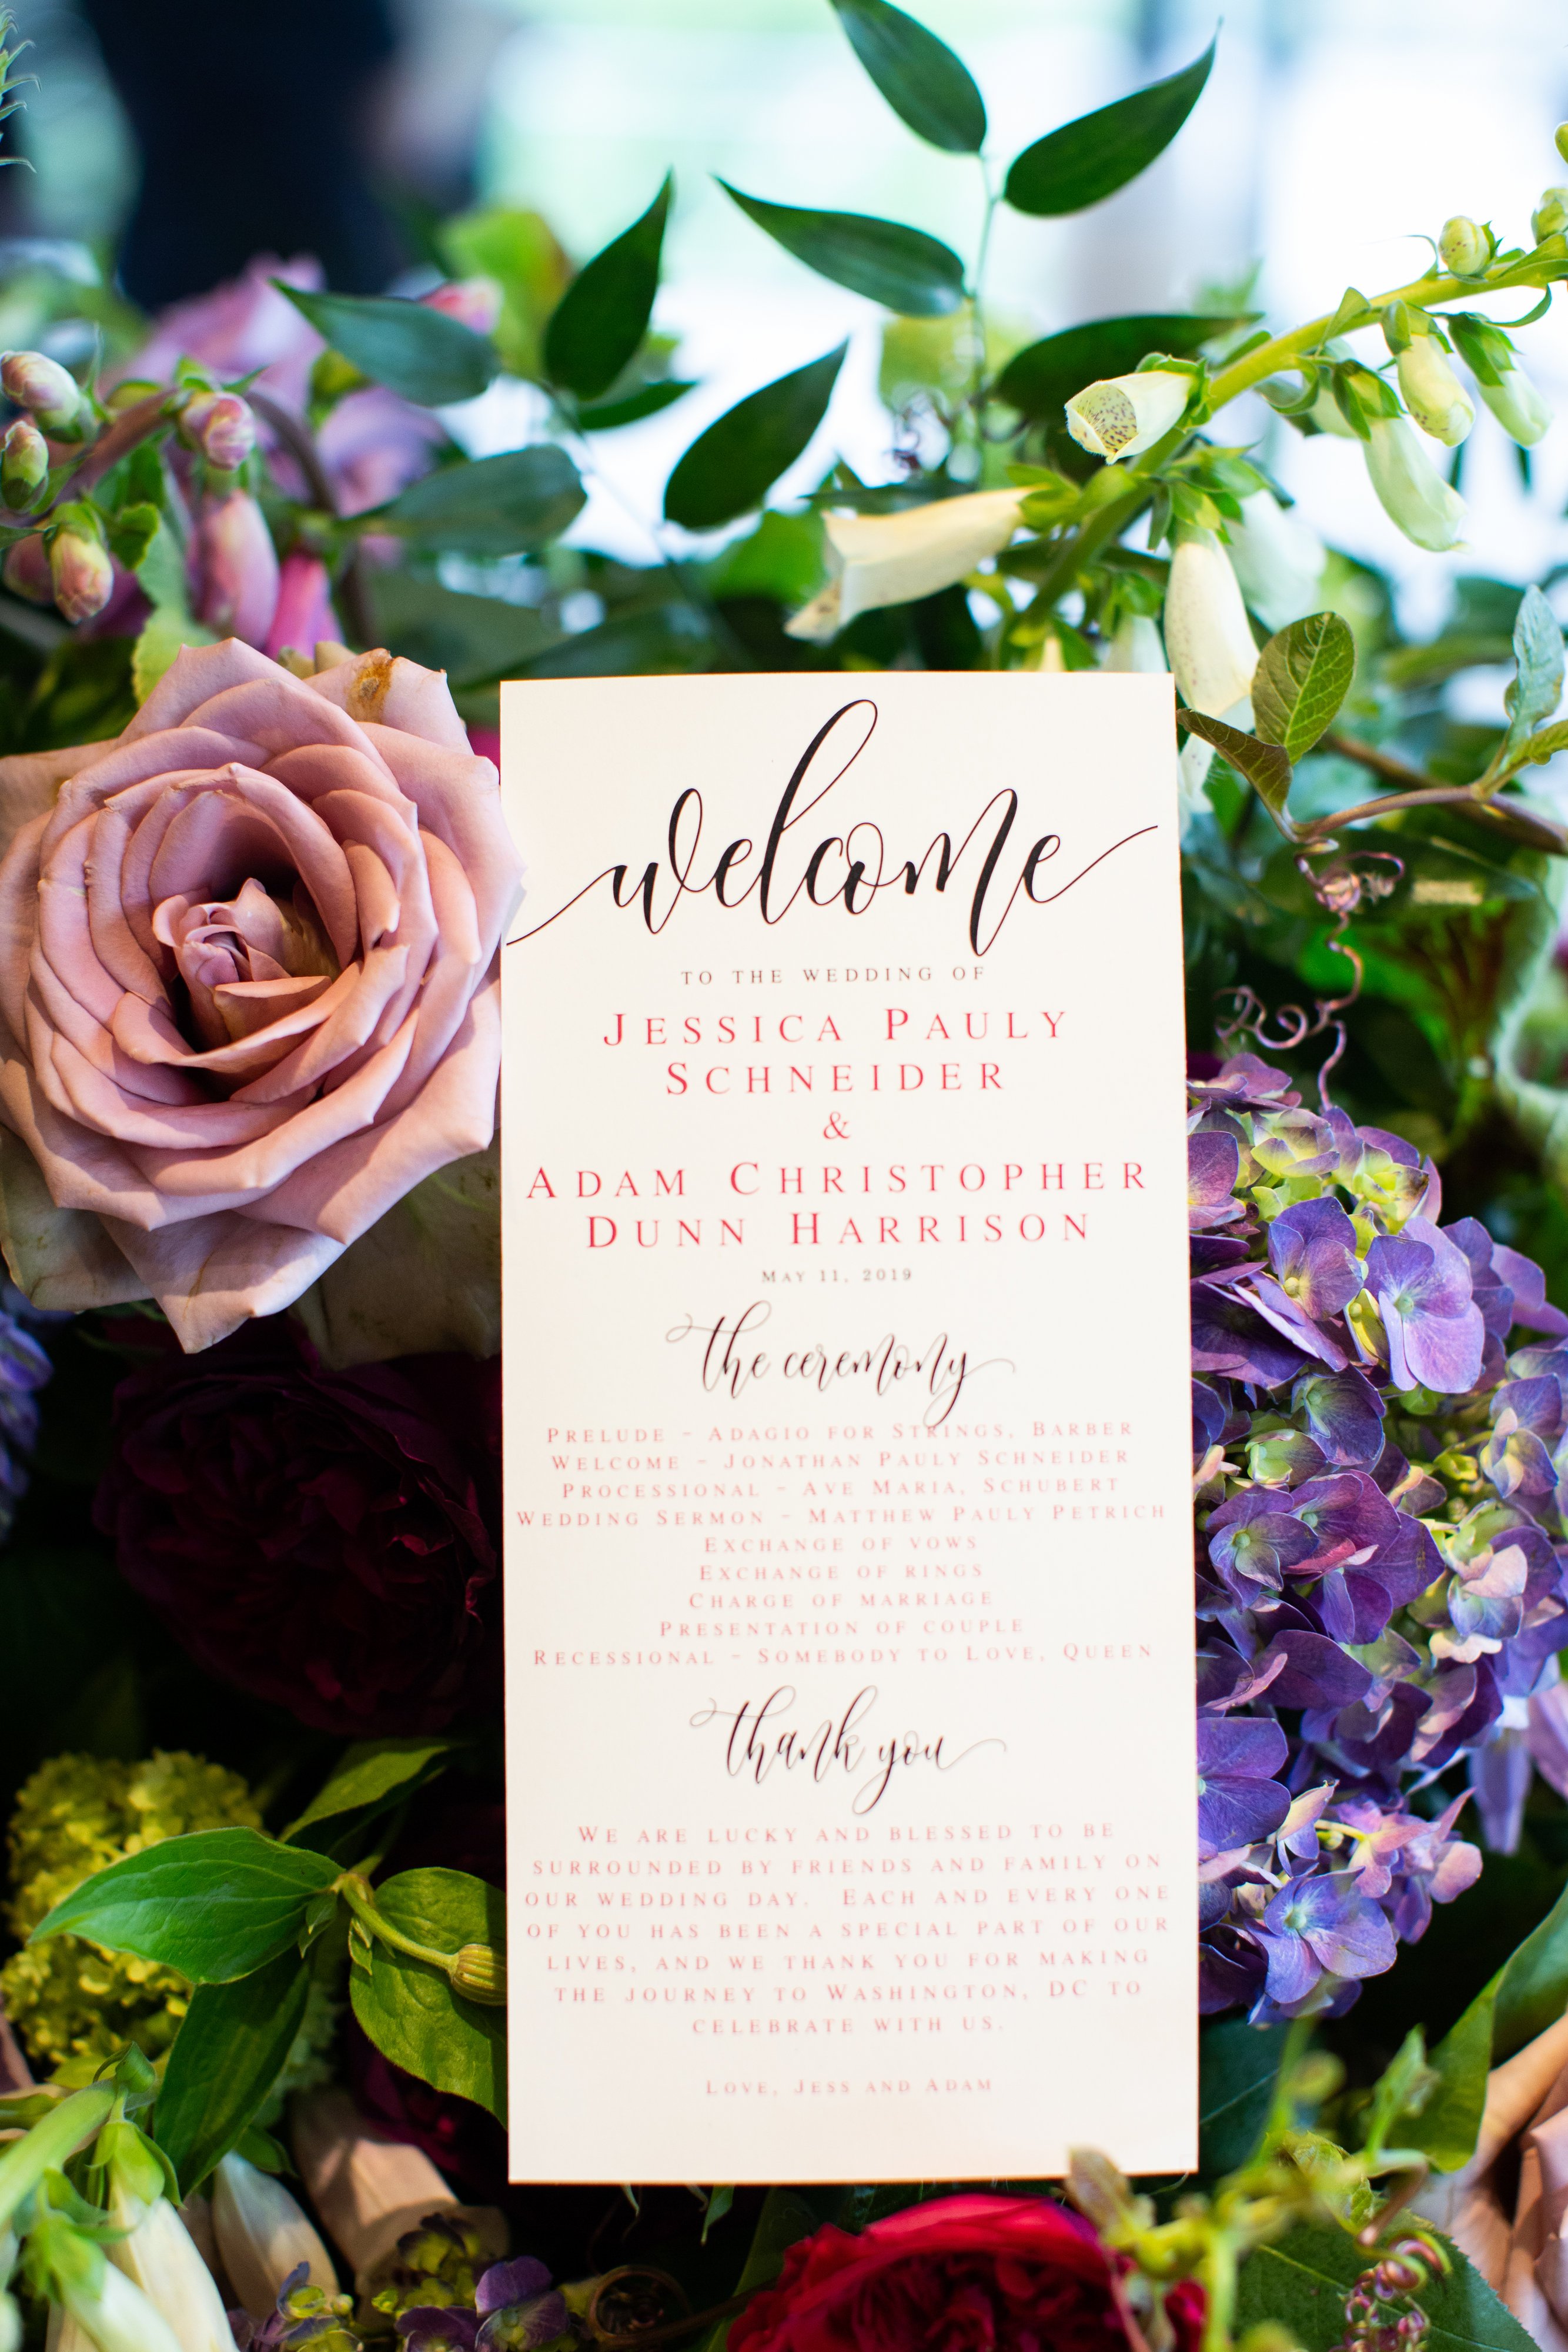 welcome
TO THE WEDDING OF
JESSICA PAULY
SCHNEIDER
&
ADAM CHRISTOPHER
DUNN HARRISON
MAY 11, 2019
the ceremony
PRELUDE - ADAGIO FOR STRINGS, BARBER
WELCOME - JONATHAN PAULY SCHNEIDER
PROCESSIONAL - AVE MARIA, SCHUBERT
WEDDING SERMON - MATTHEW PAULY PETRICH
EXCHANGE OF VOWS
EXCHANGE OF RINGS
CHARGE OF MARRIAGE
PRESENTATION OF COUPLE
RECESSIONAL - SOMEBODY TO LOVE, QUEEN
thank you
WE ARE LUCKY AND BLESSED TO BE
SURROUNDED BY FRIENDS AND FAMILY ON
OUR WEDDING DAY. EACH AND EVERY ONE
OF YOU HAS BEEN A SPECIAL PART OF OUR
LIVES, AND WE THANK YOU FOR MAKING
THE JOURNEY TO WASHINGTON, DC TO
CELEBRATE WITH US.
LOVE, JESS AND ADAM